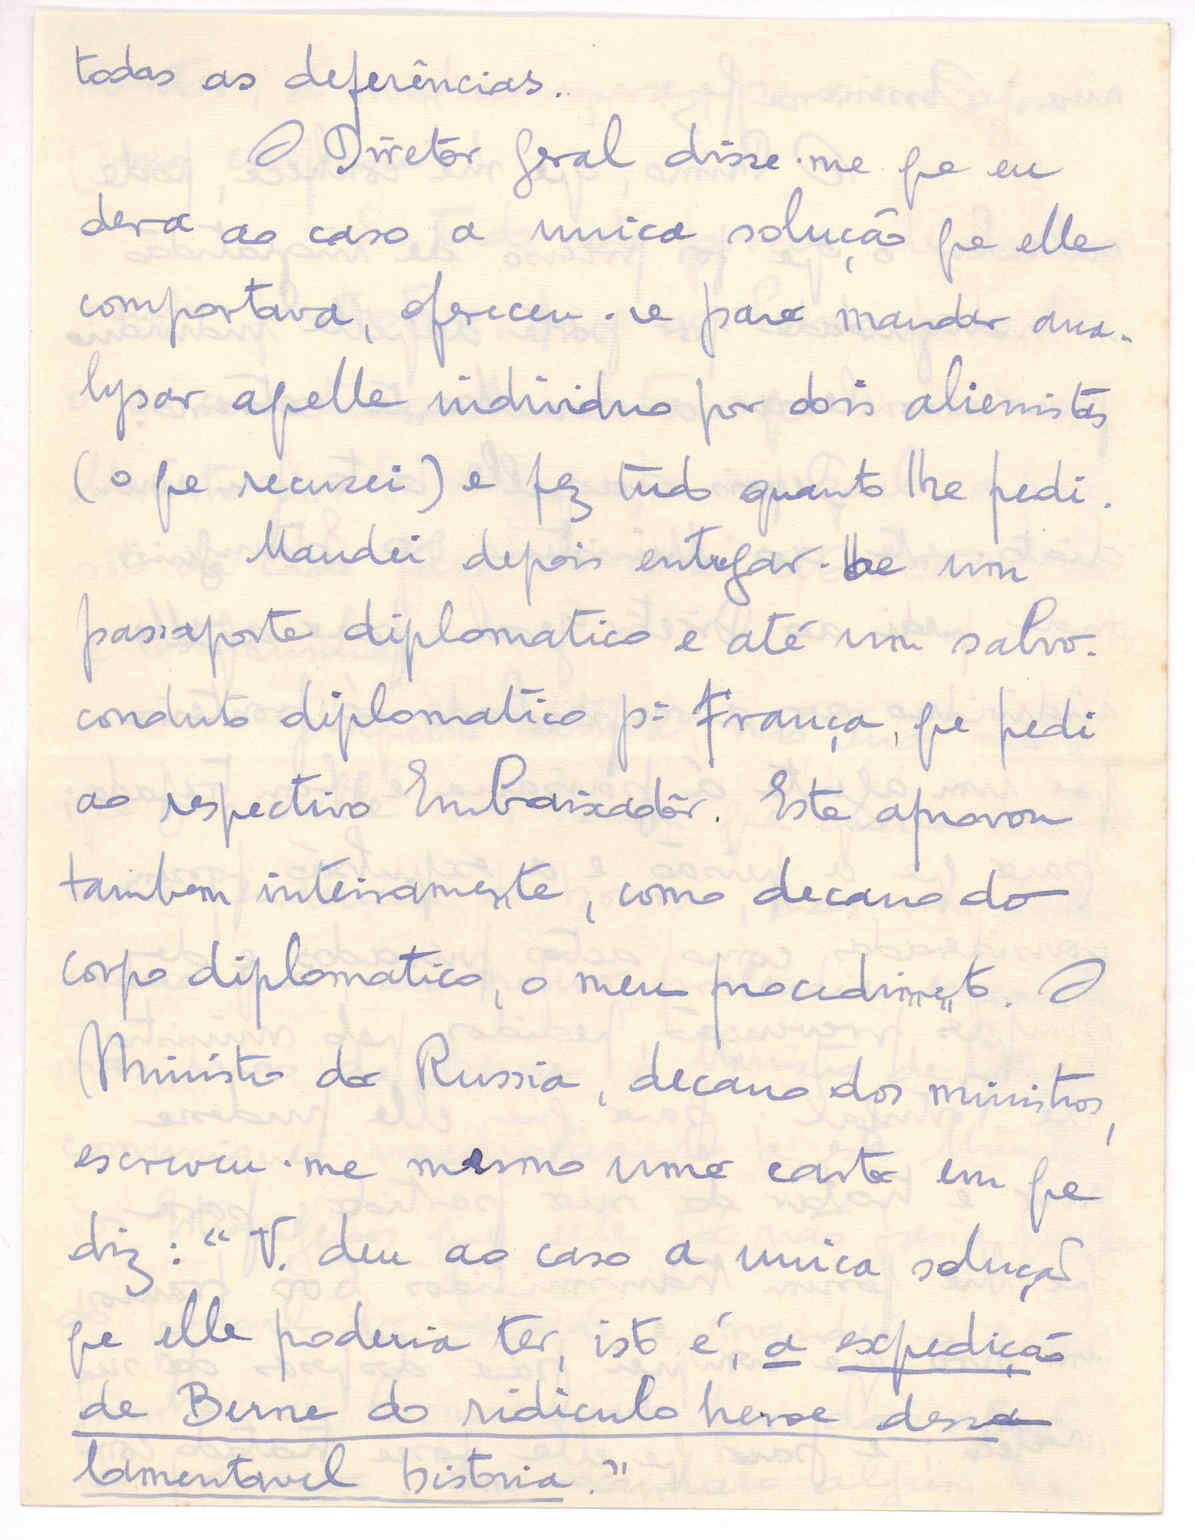 todas as deferências.
O Diretôr Geral disse-me qe eu
dera ao caso a unica solução qe elle
comportava, ofereceu-se para mandar ana-
lysar aqelle individuo por dois alienistas
(o qe recusei) e fez tudo quanto lhe pedi.
Mandei depois entregar-lhe um
passaporte diplomatico e até um salvo-
conduto diplomatico pª França, qe pedi
ao respectivo Embaixadôr. Este aprovou
tambem inteiramente, como decano do
corpo diplomatico, o meu procedimento. O
Ministro da Russia, decano dos ministros,
escreveu-me mesmo uma carta em qe
diz: "V. deu ao caso a unica solução
qe elle poderia ter, isto é, a expedição
de Berne do ridiculo heroe dessa
lamentavel historia."